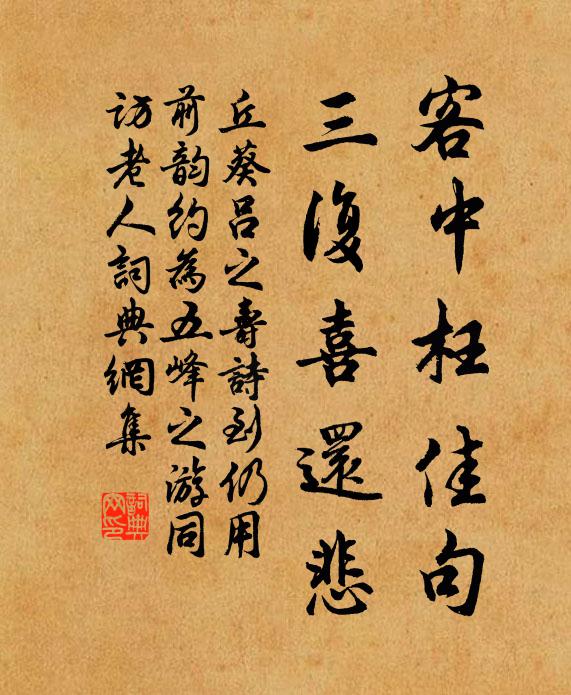 客中枉佳句
三復喜還悲
丘葵呂之壽詩到仍用
前韵約為五峰之游同
訪老人詞典網集
詞典
网印